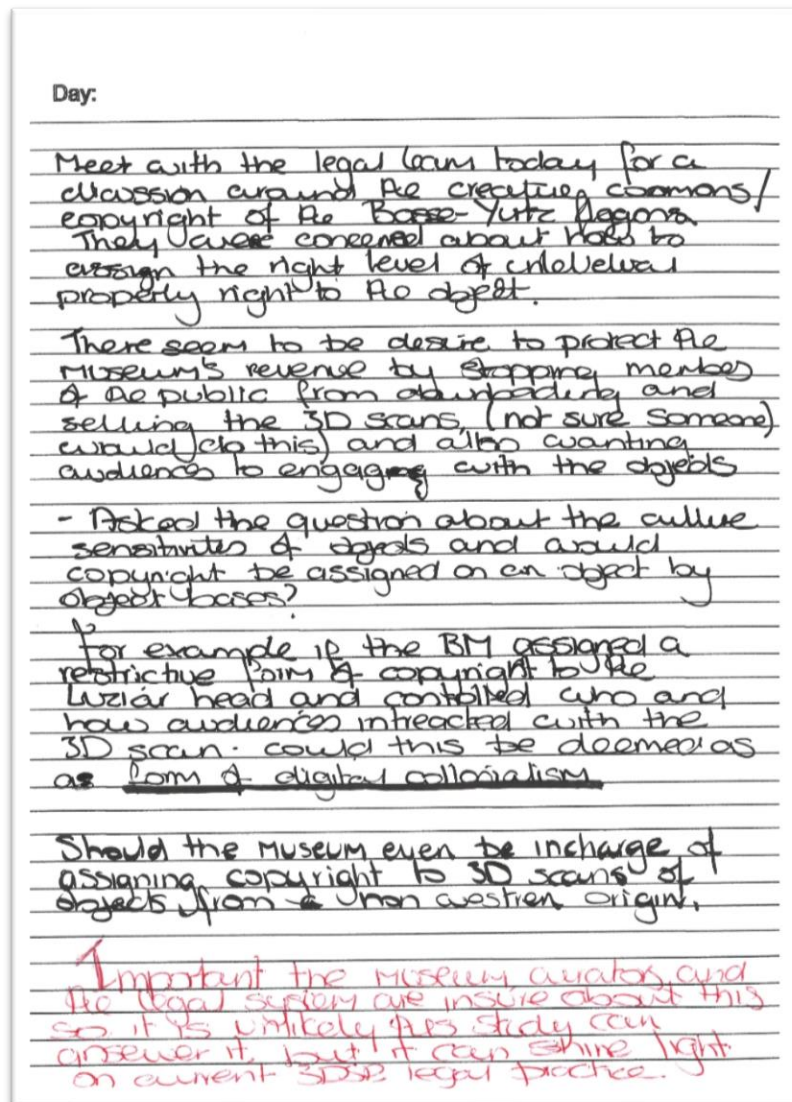 Day:
Meet with the legal team today for a
discussion around the creative commons/
copyright of the Basse-Yutz flagons
They were concerned about how to
assign the right level of
property right to the object.
There seem to be desire to protect the
Museum's revenue by stopping member
of the public from downloading and
selling the 3D scans, (not sure someone)
would (do this) and also wanting
audiences to engage with the objects
- Asked the question about the culture
sensitivites of objects and would
copyright be assigned on an object by
object bases?
for example if the BM assigned a
restrictive form of copyright to the
Luzia head and controlled who and
how audiences intreacted with the
3D scan. could this be deemed as
as form of digital collonialism
Should the Museum even be incharge of
assigning copyright to 3D scans of
objects from a non westren origin.
Important the museum, curators and
the legal system are unsure about this
so it is unlikely this study can
answer it, but it can shine light
on current 3DSR legal practice.